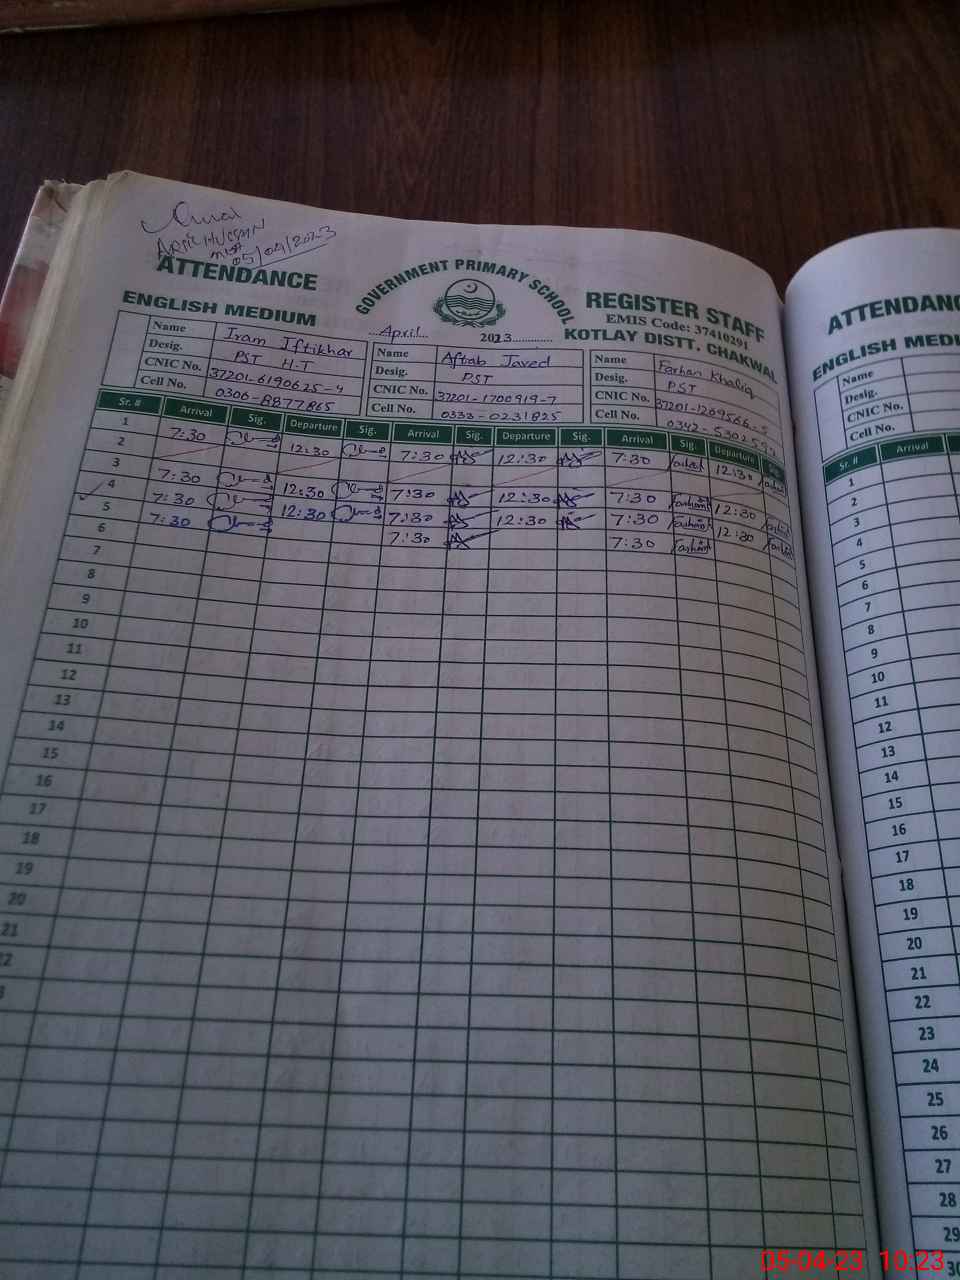 ARIF HUSSAIN
05/04/2023
ATTENDANCE
GOVERNMENT PRIMARY SCHOOL
REGISTER STAFF
EMIS Code: 37410291
ENGLISH MEDIUM
April 2023
KOTLAY DISTT. CHAKWAL
Name Iram Iftikhar
Desig. PST H.T
CNIC No. 37201-6190625-4
Cell No. 0306-8877865
Name Aftab Javed
Desig. PST
CNIC No. 37201-1700919-7
Cell No. 0333-0231825
Name Farhan Khaliq
Desig. PST
CNIC No. 37201-1269566-5
Cell No. 0342-5302
Sr. # Arrival Sig. Departure Sig. Arrival Sig. Departure Sig. Arrival Sig. Departure Sig.
1 7:30 12:30 7:30 12:30 7:30 12:30
2
3 7:30 12:30 7:30 12:30 7:30 Farhan 12:30
4 7:30 12:30 7:30 12:30 7:30 Farhan 12:30
5 7:30 7:30 7:30 Farhan
6
7
8
9
10
11
12
13
14
15
16
17
18
19
20
21
22
ATTENDANC
ENGLISH MEDI
Name
Desig.
CNIC No.
Cell No.
Sr. # Arrival
1
2
3
4
5
6
7
8
9
10
11
12
13
14
15
16
17
18
19
20
21
22
23
24
25
26
27
28
29
30
05-04-23 10:23